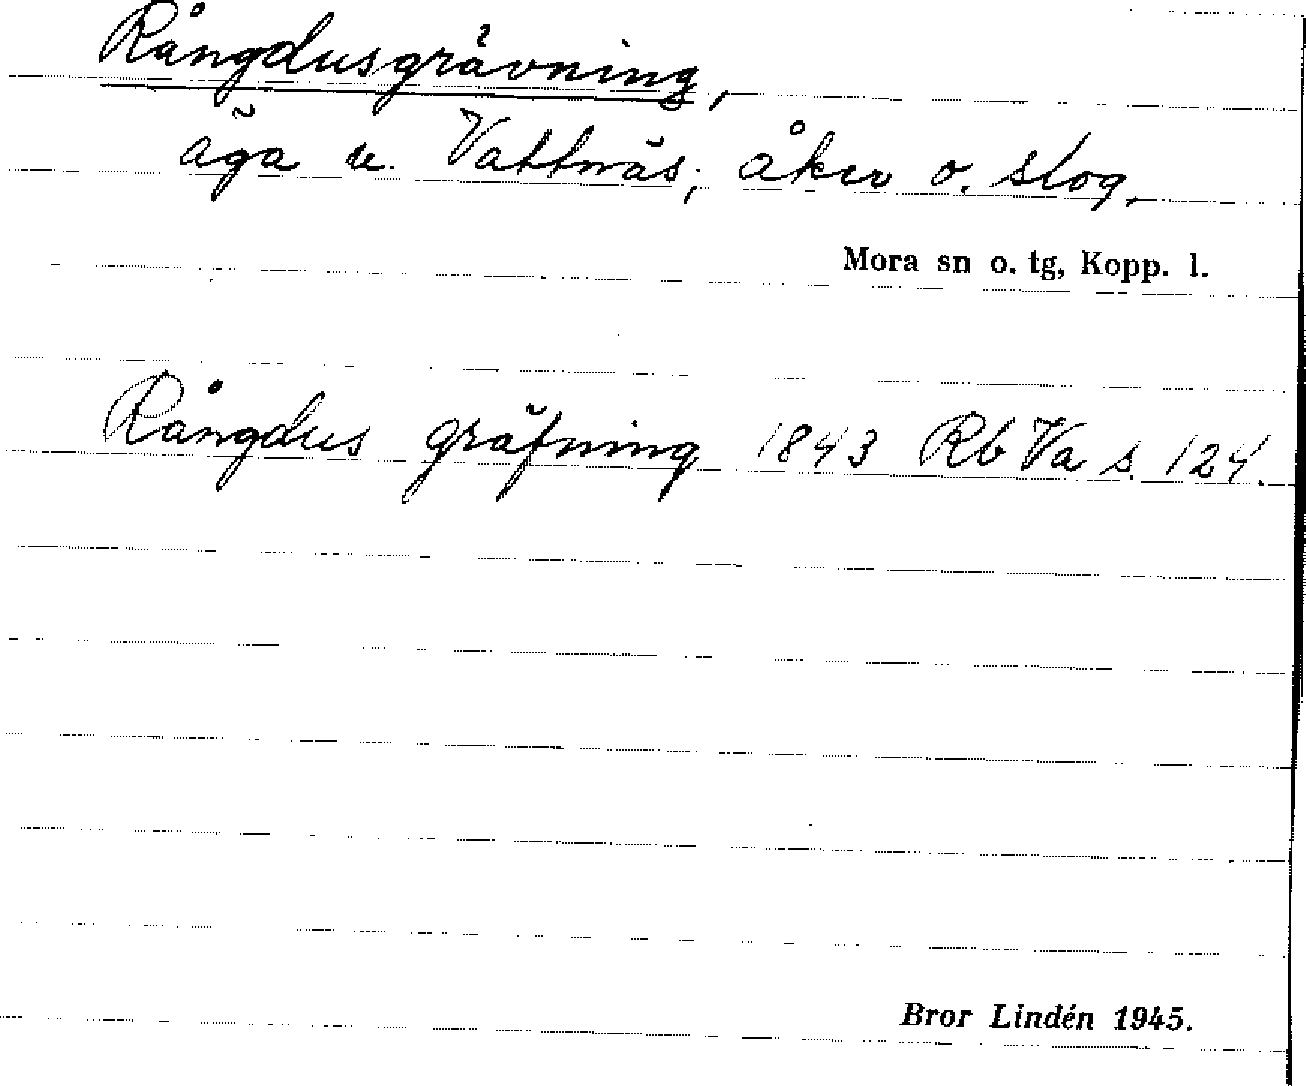 Rångdusgrävning,
äga u. Vattnäs; åker o. slog,
Mora sn o. tg, Kopp. l.
Rångdus gräfning 1843 Rb Va s. 124.
Bror Lindén 1945.